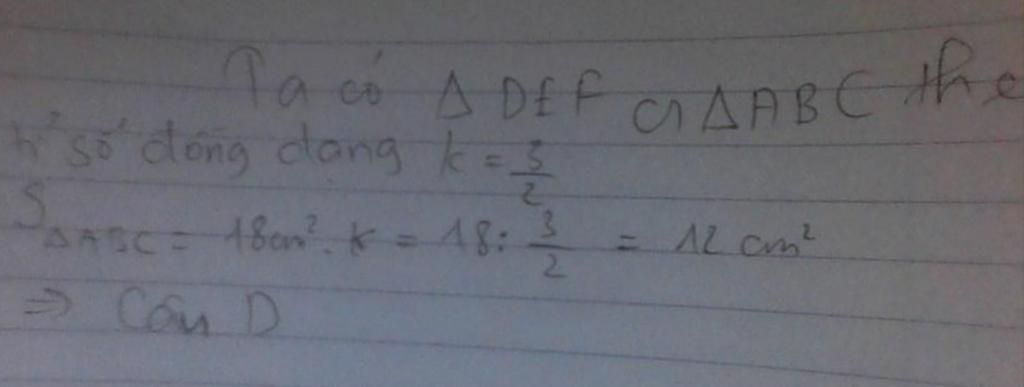 Ta có Δ DEF ᔕ ΔABC the
tỉ số đồng dạng k = 3/2
SΔABC = 18cm². k = 18: 3/2 = 12 cm²
=> Câu D